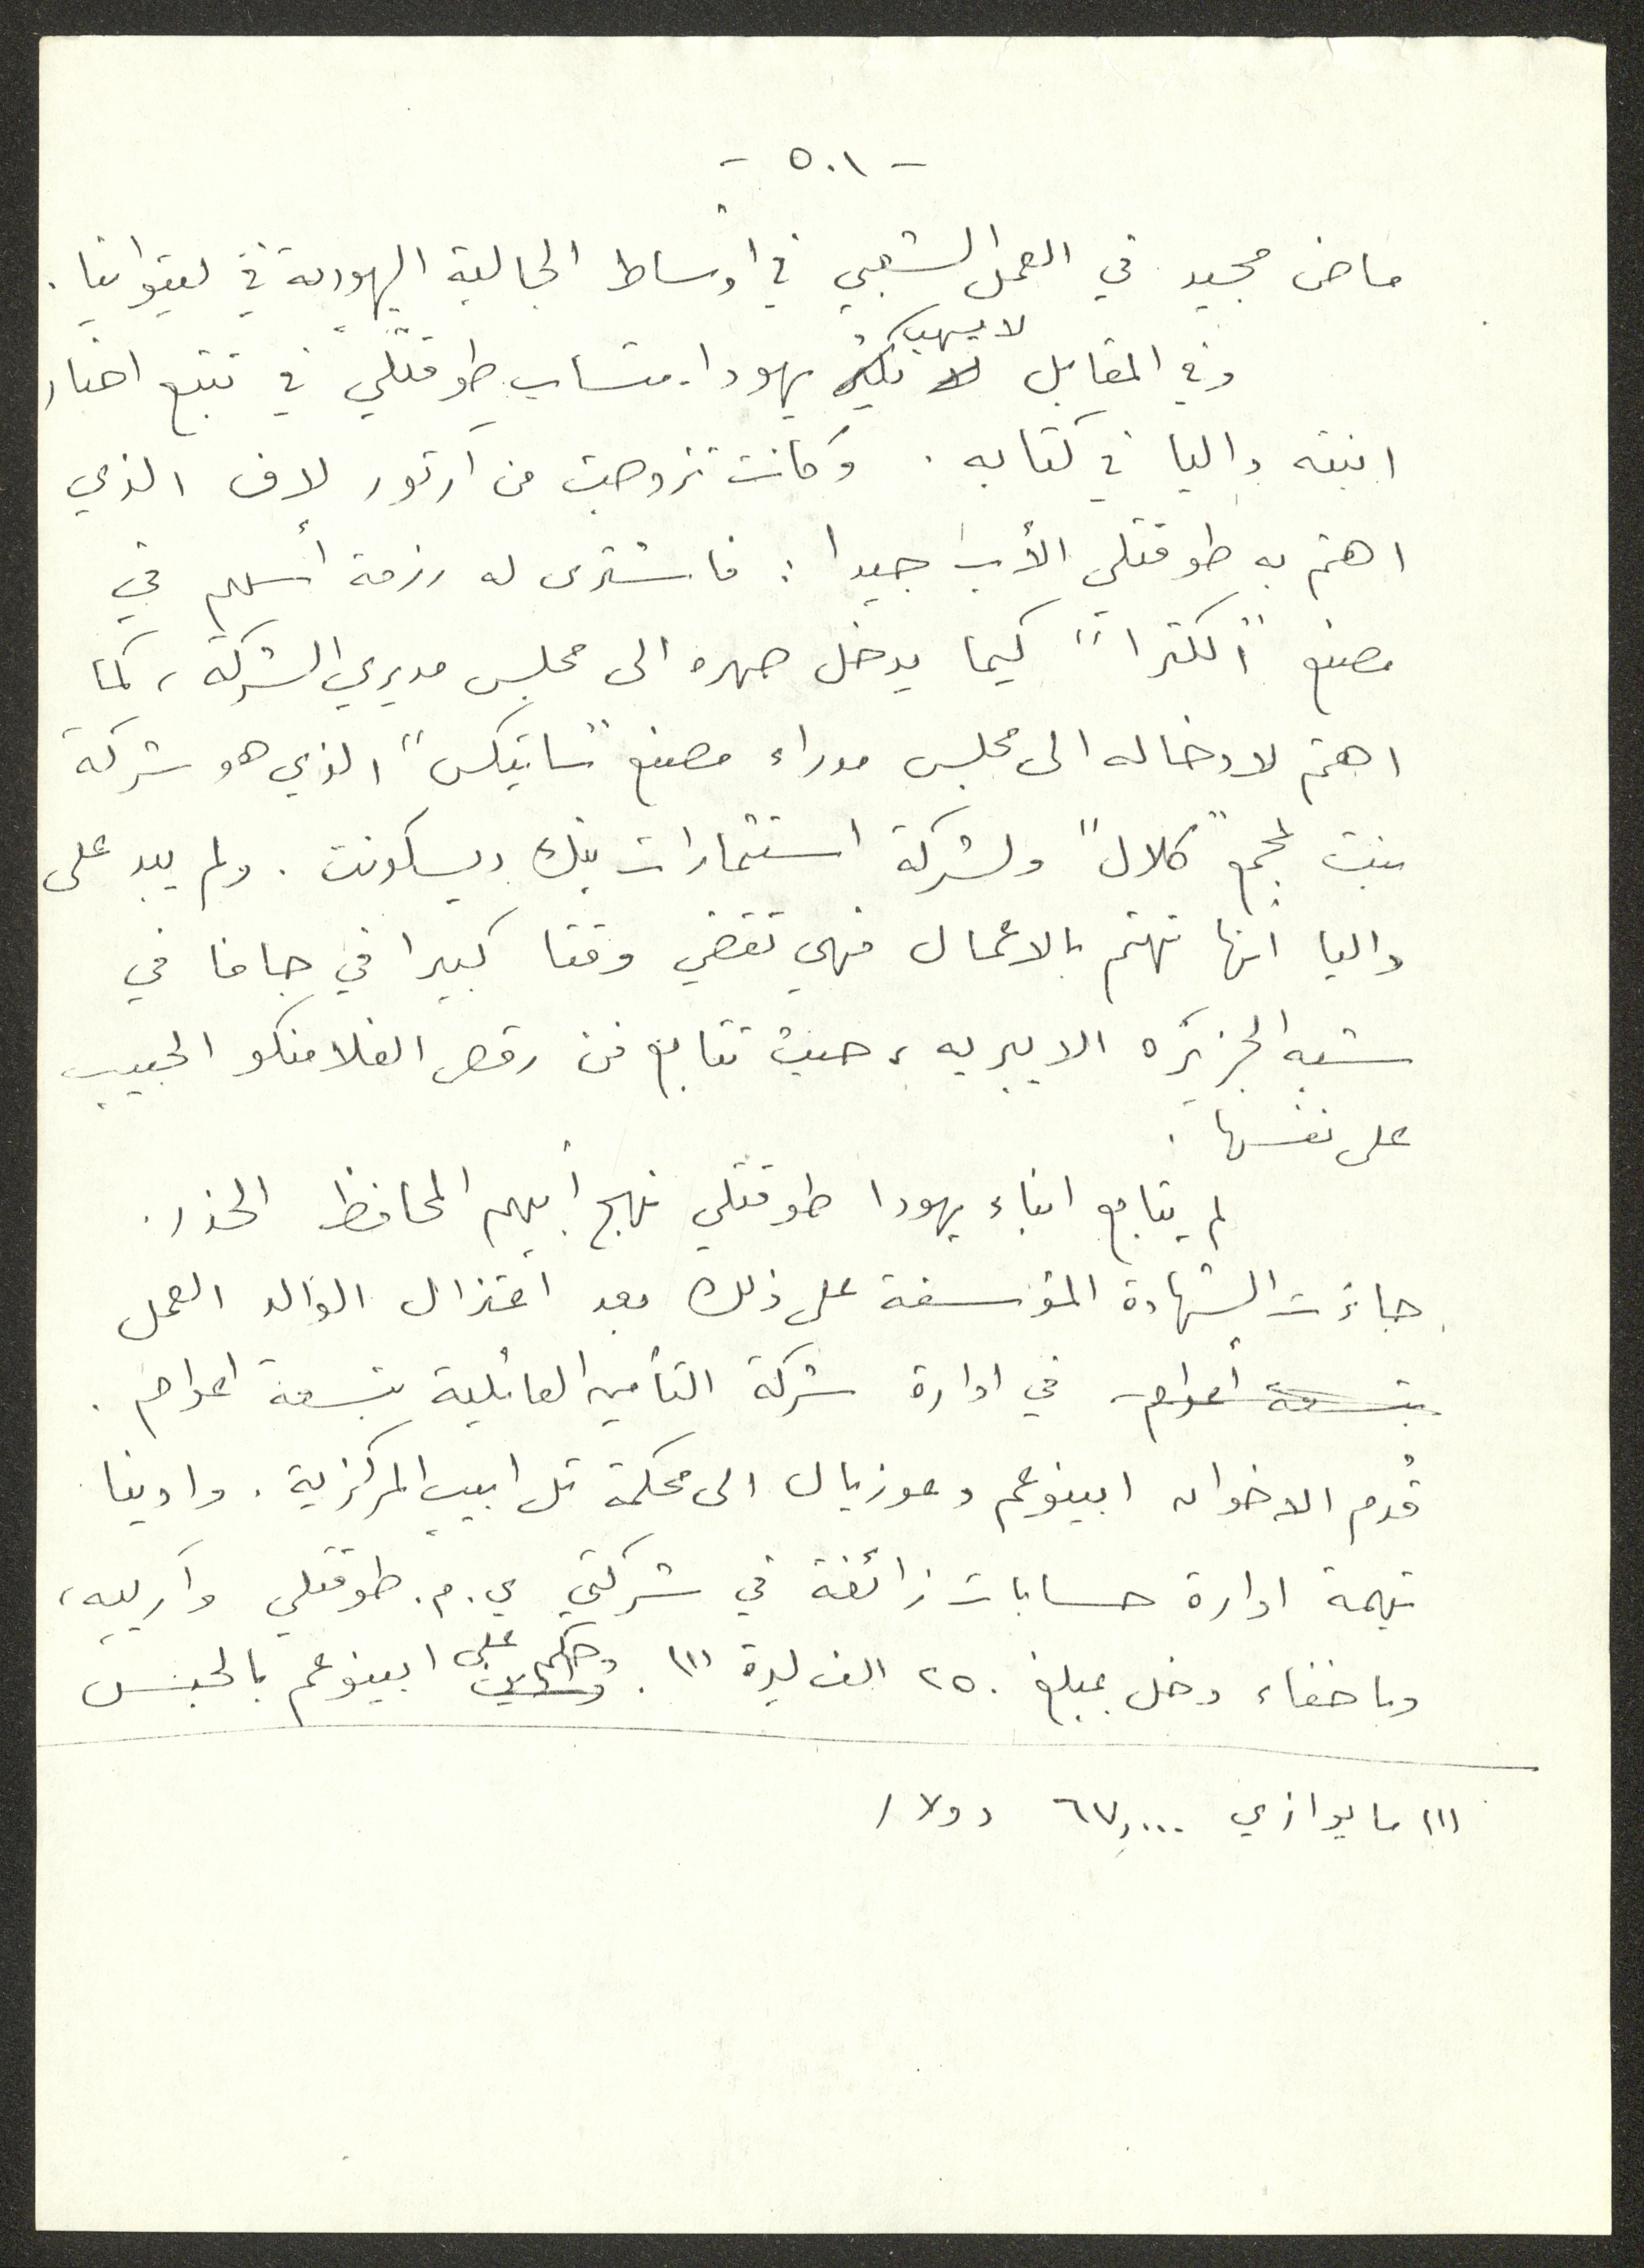 - ٥٠١ -
ماض مجيد في العمل الشعبي في أوساط الجالية اليهودية في ليتوانيا .
وفي المقابل لا يسهب يهودا متساب طوقتلي في تتبع اخبار
ابنته داليا في كتابه . وكانت تزوجت من آرتور لاف الذي
اهتم به طوقتلي الأب جيدا : فاشترى له رزمة أسهم في
مصنع "الكترا" كيما يدخل صهره الى مجلس مديري الشركة ، كما
اهتم لادخاله الى مجلس مدراء مصنع "سانيكس" الذي هو شركة
بنت لمجمع "كلال" ولشركة استثمارات بنك ديسكونت . ولم يبد على
داليا أنها تهتم بالاعمال فهي تقضي وقتا كبيرا في جافا في
شبه الجزيره الايبريه ، حيث تتابع فن رقص الفلامنكو الحبيب
على نفسها .
لم يتابع ابناء يهودا طوقتلي نهج أبيهم المحافظ الحذر .
جاءت الشهادة المؤسفة على ذلك بعد اعتزال الوالد العمل
بتسعة أعوام في ادارة شركة التأمين العائلية بتسعة اعوام .
قُدم الاخوان ابينوعم وعوزيال الى محكمة تل ابيب المركزية . وادينا
بتهمة ادارة حسابات زائفة في شركتي ي . م . طوقتلي وآرييه ،
وباخفاء دخل بمبلغ ٢٥٠ الف ليرة (١) . وحكم على ابينوعم بالحبس
(١) ما يوازي ٦٧,٠٠٠ دولار